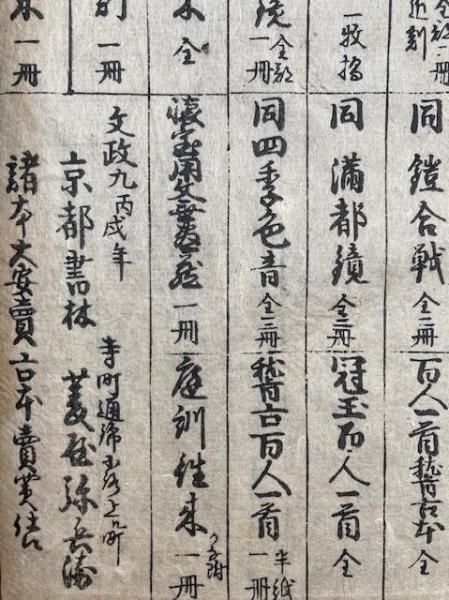 全部二冊
近刻
同 鎧合戦 全二冊
百人一首稽古本 全
一枚摺
同 満都鏡 全三冊
冠玉百人一首 全
全部
一冊
同四季色音 全三冊
稽古百人一首 半紙一冊
全
懐宝用文 一冊
庭訓往来 一冊
一冊
文政九丙戌年
京都書林
寺町通 上ル町
菱屋弥兵衛
一冊
諸本大安売古本売買仕